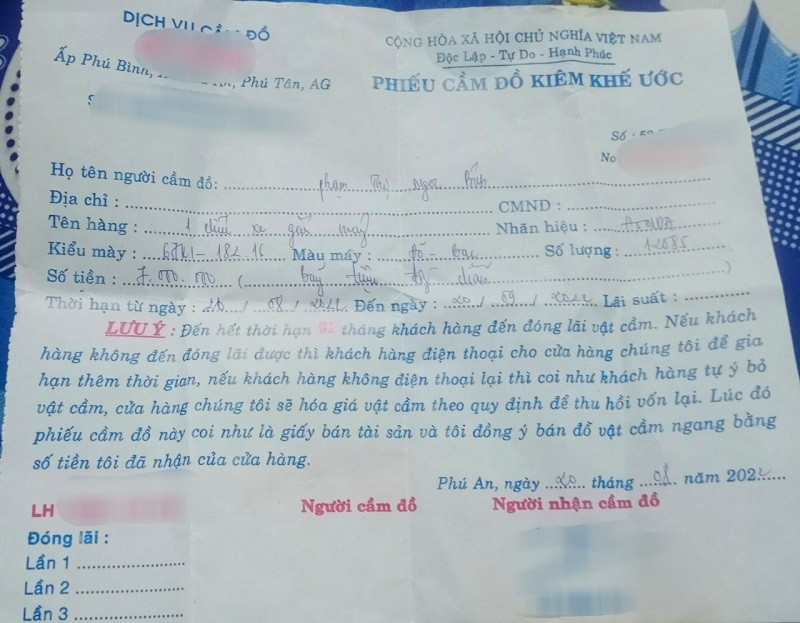 DỊCH VỤ CẦM ĐỒ
Ấp Phú Bình, Phú Tân, AG
CỘNG HÒA XÃ HỘI CHỦ NGHĨA VIỆT NAM
Độc Lập - Tự Do - Hạnh Phúc
PHIẾU CẦM ĐỒ KIÊM KHẾ ƯỚC
Số
No
Họ tên người cầm đồ: phạm Thị Ngọc
Địa chỉ : CMND :
Tên hàng : 1 xe gắn máy Nhãn hiệu : HONDA
Kiểu mày : Màu mấy : đỏ - bạc Số lượng :
Số tiền : 7.000.000 ( bảy triệu )
Thời hạn từ ngày : 20 / 08 / 2022 Đến ngày : 20 / 09 / 2022 Lãi suất :
LƯU Ý : Đến hết thời hạn tháng khách hàng đến đóng lãi vật cầm. Nếu khách
hàng không đến đóng lãi được thì khách hàng điện thoại cho cửa hàng chúng tôi để gia
hạn thêm thời gian, nếu khách hàng không điện thoại lại thì coi như khách hàng tự ý bỏ
vật cầm, cửa hàng chúng tôi sẽ hóa giá vật cầm theo quy định để thu hồi vốn lại. Lúc đó
phiếu cầm đồ này coi như là giấy bán tài sản và tôi đồng ý bán đồ vật cầm ngang bằng
số tiền tôi đã nhận của cửa hàng.
Phú An, ngày 20 tháng 08 năm 2022
LH
Người cầm đồ Người nhận cầm đồ
Đóng lãi :
Lần 1
Lần 2
Lần 3